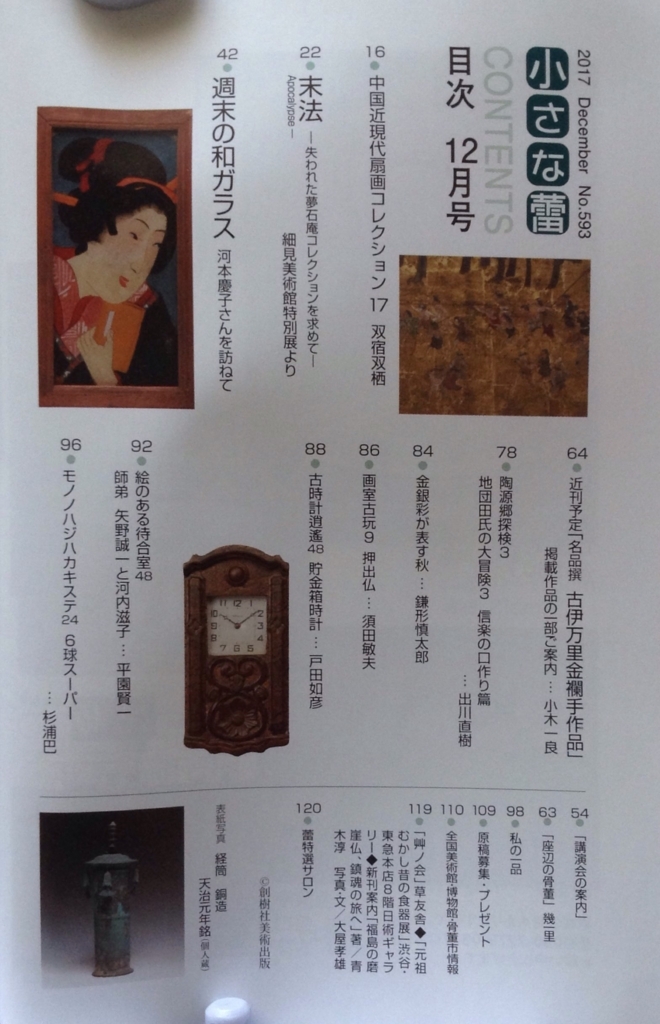 2017 December No.593
小さな蕾
CONTENTS
目次 12月号
16 ● 中国近現代扇画コレクション 17 双宿双栖
22 ● 末法 ―失われた夢石庵コレクションを求めて―
Apocalypse ―
細見美術館特別展より
42 ● 週末の和ガラス 河本慶子さんを訪ねて
64 ● 近刊予定「名品撰 古伊万里金襴手作品」
掲載作品の一部ご案内 … 小木一良
78 ● 陶源郷探検3
地団田氏の大冒険3 信楽の口作り篇
… 出川直樹
84 ● 金銀彩が表す秋 … 鎌形慎太郎
86 ● 画室古玩9 押出仏 … 須田敏夫
88 ● 古時計逍遙48 貯金箱時計 … 戸田如彦
92 ● 絵のある待合室48
師弟 矢野誠一と河内滋子 … 平園賢一
96 ● モノノハジハカキステ24 6球スーパー
… 杉浦巴
54 ● 「講演会の案内」
63 ● 「座辺の骨董」幾一里
98 ● 私の一品
109 ● 原稿募集・プレゼント
110 ● 全国美術館・博物館・骨董市情報
119 ● 「艸ノ会」草友舎◆「元祖
むかし昔の食器展」渋谷・
東急本店8階日術ギャラ
リー◆新刊案内「福島の磨
崖仏、鎮魂の旅へ」著/青
木淳 写真・文/大屋孝雄
120 ● 蕾特選サロン
©創樹社美術出版
表紙写真 経筒 銅造
天治元年銘（個人蔵）